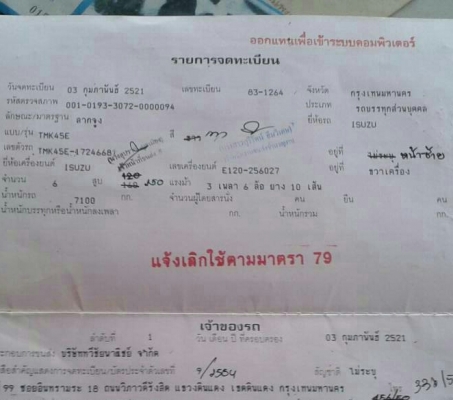 ออกแทนเพื่อเข้าระบบคอมพิวเตอร์
รายการจดทะเบียน
วันจดทะเบียน 03 กุมภาพันธ์ 2521 เลขทะเบียน 83-1264 จังหวัด กรุงเทพมหานคร
รหัสตรวจสภาพ 001-0193-3072-0000094 ประเภท รถบรรทุกส่วนบุคคล
ลักษณะ/มาตรฐาน ลากจูง ยี่ห้อรถ ISUZU
แบบ/รุ่น TMK45E สี เทา
เลขตัวรถ TMK45E-1724668 อยู่ที่ หน้าซ้าย
ยี่ห้อเครื่องยนต์ ISUZU เลขเครื่องยนต์ E120-256027 อยู่ที่ ขวาเครื่อง
จำนวน 6 สูบ 150 แรงม้า 3 เพลา 6 ล้อ ยาง 10 เส้น
น้ำหนักรถ 7100 กก. จำนวนผู้โดยสารนั่ง คน ยืน คน
น้ำหนักบรรทุกหรือน้ำหนักลงเพลา กก. น้ำหนักรวม กก.
แจ้งเลิกใช้ตามมาตรา 79
เจ้าของรถ
ลำดับที่ 1 วัน เดือน ปี ที่ครอบครอง 03 กุมภาพันธ์ 2521
ะกอบการขนส่ง บริษัททวีชัยพาณิชย์ จำกัด
9/2504 สัญชาติ ไม่ระบุ
99 ซอยอินทามระ 18 ถนนวิภาวดีรังสิต แขวงดินแดง เขตดินแดง กรุงเทพมหานคร